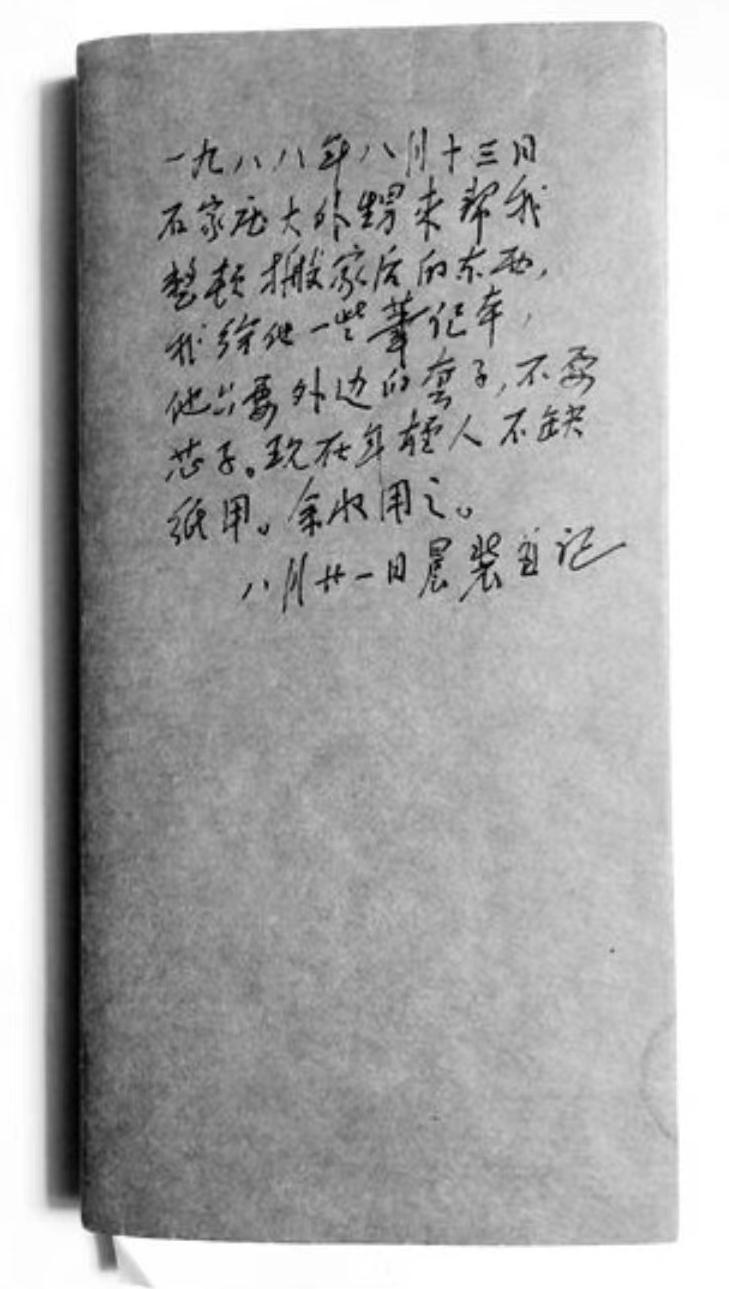 一九八八年八月十三日
石家庄大外甥来帮我
整顿搬家后的东西,
我给他一些筆记本,
他只要外边的套子,不要
芯子。现在年轻人不缺
纸用。余收用之。
八月廿一日晨装並记